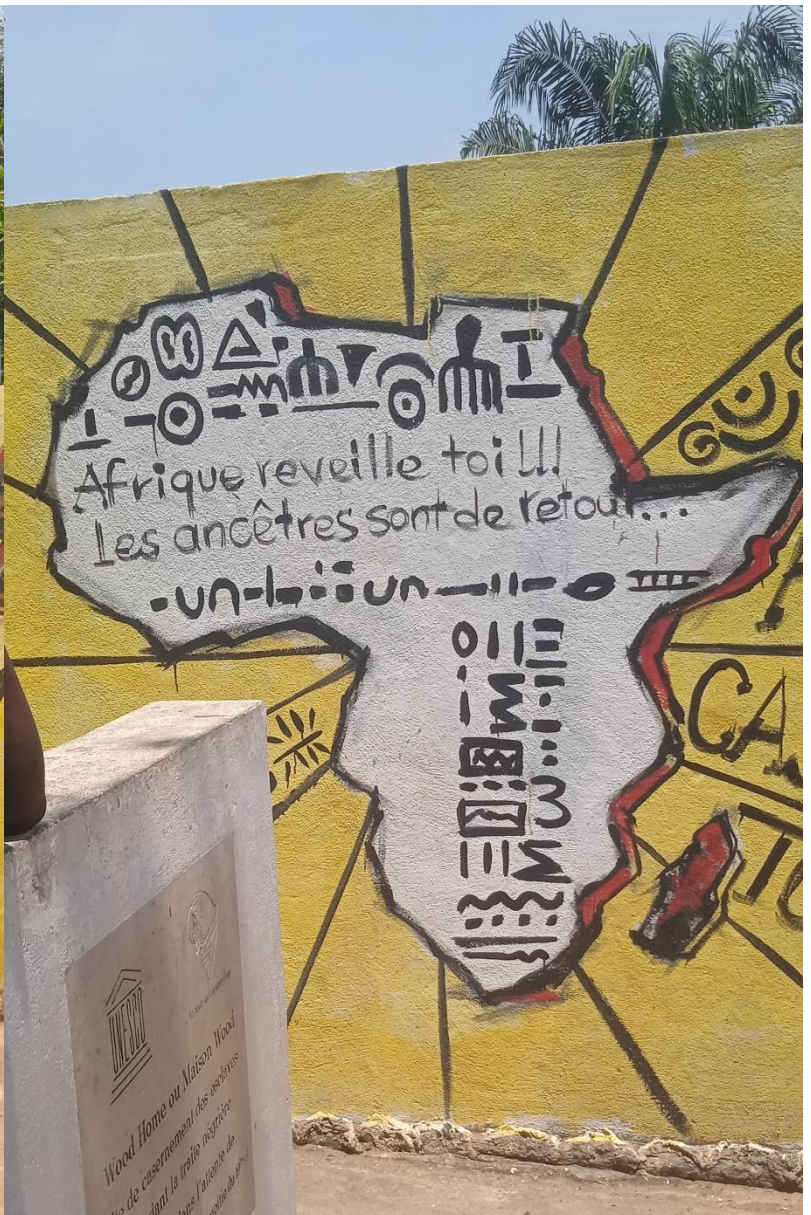 Afrique reveille toi !!!
Les ancêtres sont de retour...
CA
TO
UNESCO
Wood Home ou Maison Wood
de casernement des esclaves
dant la traite négrière
dans l'attente de